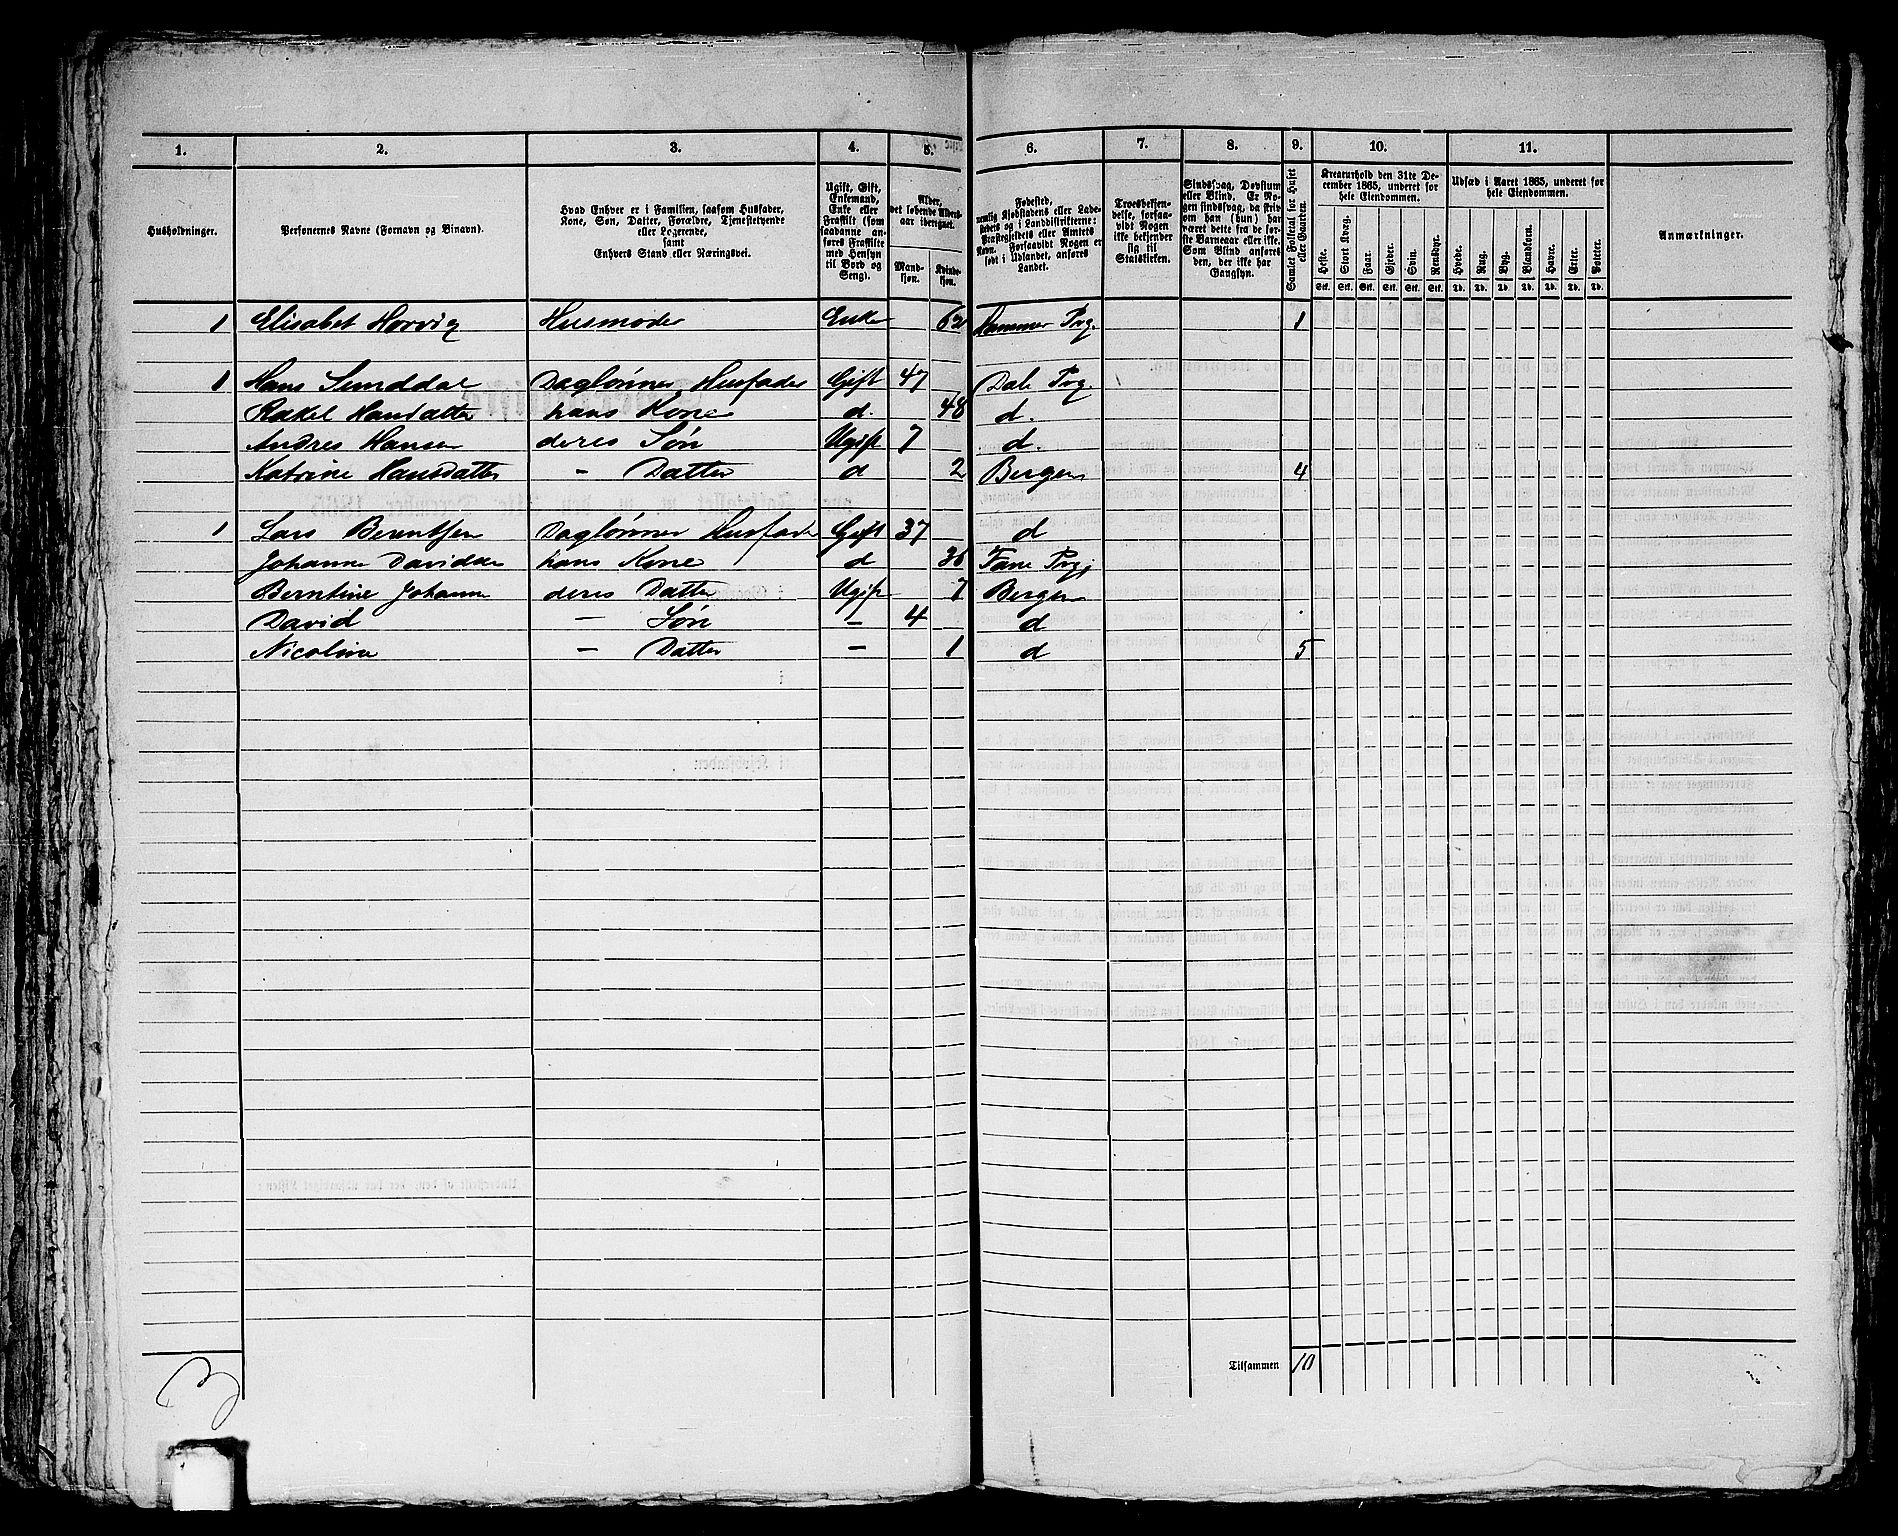 1. 2. 3. 4. 5. 6. 7. 8. 9. 10. 11.
Husholdninger.
Personernes Navne (Fornavn og Binavn).
Hvad Enhver er i Familien, saasom Husfader,
Kone, Søn, Datter, Forældre, Tjenestetyende
eller Logerende,
samt
Enhvers Stand eller Næringsvei.
Ugift, Gift,
Enkemand,
Enke eller
Fraskilt (som
saadanne an-
føres Fraskilte
med Hensyn
til Bord og
Seng).
Alder,
det løbende Alders-
aar iberegnet.
Mand-
kjøn.
Kvinde-
kjøn.
Fødested,
nemlig Kjøbstadens eller Lade-
stedets eller i Landdistrikterne:
Præstegjeldets eller Amtets
Navn. Forsaavidt Nogen er
født i Udlandet, anføres
Landet.
Troesbekjen-
delse, forsaa-
vidt Nogen
ikke bekjender
sig til
Statskirken.
Sindssvag, Døvstum
eller Blind. Er No-
gen sindssvag, da skriv
om han (hun) har
været dette fra de før-
ste Barneaar eller ikke.
Som Blind anføres
den, der ikke har
Gangsyn.
Samlet Folketal for Huset
eller Gaarden.
Kreaturhold den 31te De-
cember 1865, underet for
hele Eiendommen.
Heste. Stort Kvæg. Faar. Gjeder. Svin. Rensdyr.
Stk. Stk. Stk. Stk. Stk. Stk.
Udsæd i Aaret 1865, underet for
hele Eiendommen.
Hvede. Rug. Byg. Blandkorn. Havre. Erter. Poteter.
Td. Td. Td. Td. Td. Td. Td.
Anmærkninger.
1 Elisabet Horvig Husmoder Enke 62 Hammer Prg. 1
1 Hans Sunddal Daglønner Husfader Gift 47 Dale Prg.
Rakel Hansdatter hans Kone d. 48 d.
Andres Hansen deres Søn Ugift 7 d.
Katrine Hansdatter - Datter d 2 Bergen 4
1 Lars Berentsen Daglønner Husfader Gift 37 d
Johanne Davidsen hans Kone d 36 Fane Prgj
Berntine Johanne deres Datter Ugift 7 Bergen
David - Søn - 4 d
Nicoline - Datter - 1 d 5
Tilsammen 10
3